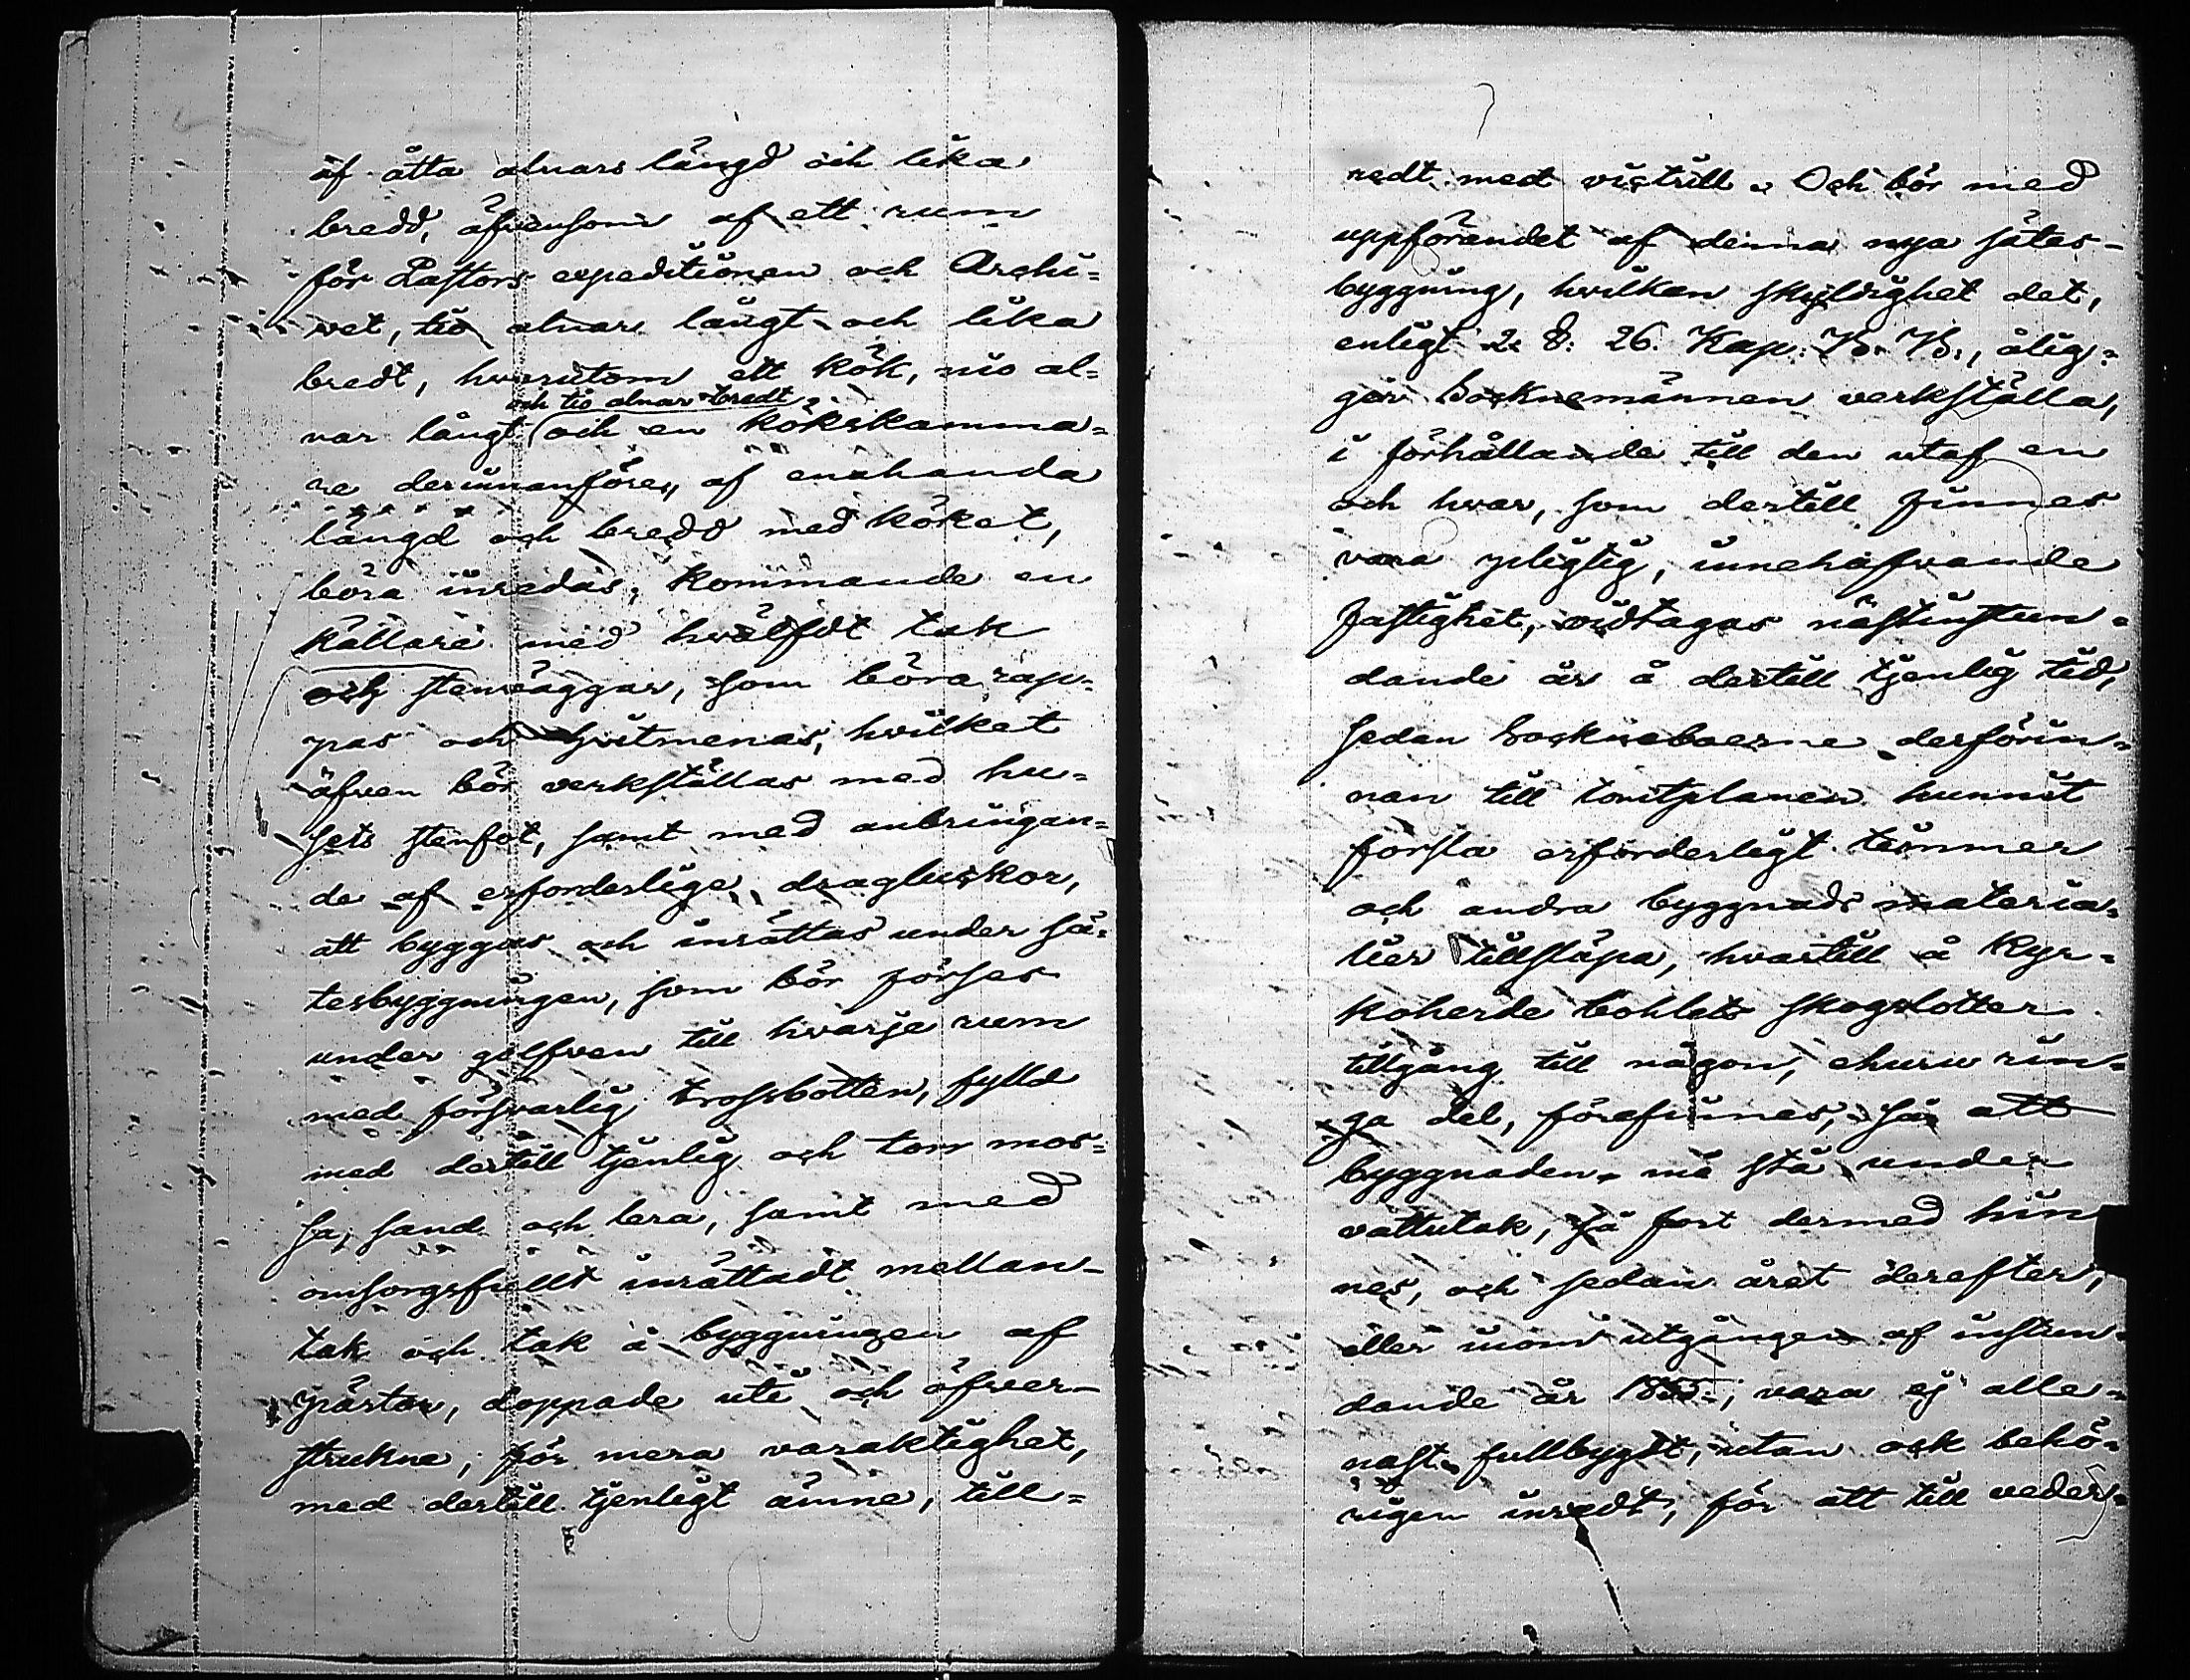 af åtta alnars längd och lika
bredd, äfvensom af ett rum
för Pastors expeditionen och Archi=
vet, tio alnar långt och lika
bredt, hvarutom ett kök, nio al=
och tio alnar bredt
nar långt och en kökskamma=
re derinnanföre, af enahanda
längd och bredd med köket,
böra inredas; kommande en
källare med hvälfdt tak
och stenväggar, som böra rap=
pas och hvitmenas, hvilket
äfven bör verkställas med hu=
sets stenfot, samt med anbringan=
de af erforderlige dragluckor,
att byggas och inrättas under sä=
tesbyggningen, som bör förses
under golfven till hvarje rum
med försvarlig trossbotten, fylld
med dertill tjenlig och torr mos=
sa, sand och lera, samt med
omsorgsfullt inrättadt mellan-
tak och tak å byggningen af
spärtor, doppade uti och öfver-
strukne, för mera varaktighet,
med dertill tjenligt ämne, till=
redt med victrill. Och bör med
uppförandet af denna nya sätes-
byggning, hvilken skyldighet det,
enligt 2 §. 26. Kap. B. B., ålig=
ger Socknemännen verkställa,
i förhållande till den utaf en
och hvar, som dertill finnes
vara pligtig, innehafvande
fastighet, vidtagas nästinstun=
dande år å dertill tjenlig tid,
sedan Sockneboerne derförin=
nan till tomtplanen hunnit
forsla erforderligt timmer
och andra byggnads materia=
lier tillsläpa, hvartill å Kyr=
koherde bohlets skogslotter
tillgång till någon, ehuru rin=
ga del, förefinnes, så att
byggnaden må stå under
vattutak, så fort dermed hin
nes, och sedan året derefter,
eller inom utgången af instun=
dande år 1855, vara ej alle=
nast fullbygdt, utan ock behö=
rigen inredt, för att till veder=